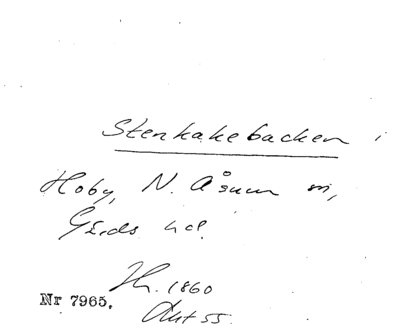 Stenkakebacken i
Hoby, N. Åsum sn,
Gärds hd.
H. 1860
Nr 7965.
Ant 55.